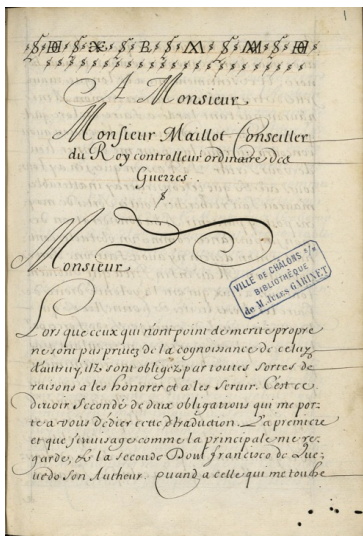 1
A Monsieur
Monsieur Maillot Conseiller
du Roy controlleur ordinaire des
Guerres.
Monsieur
VILLE DE CHÂLONS s/M
BIBLIOTHÈQUE
de M. JULES GARINET
Lors que ceux qui nont point de merite propre
ne sont pas privez de la cognoissance de celuy
d'autruy, ilz sont obligez par toutes sortes de
raisons a les honorer et a les servir. C'est ce
devoir secondé de deux obligations qui me por-
te a vous dedier cette traduction. La premiere
et que j'envisage comme la principale me re-
garde, et la seconde Dom francisco de Que-
vedo son Autheur. quand a celle qui me touche